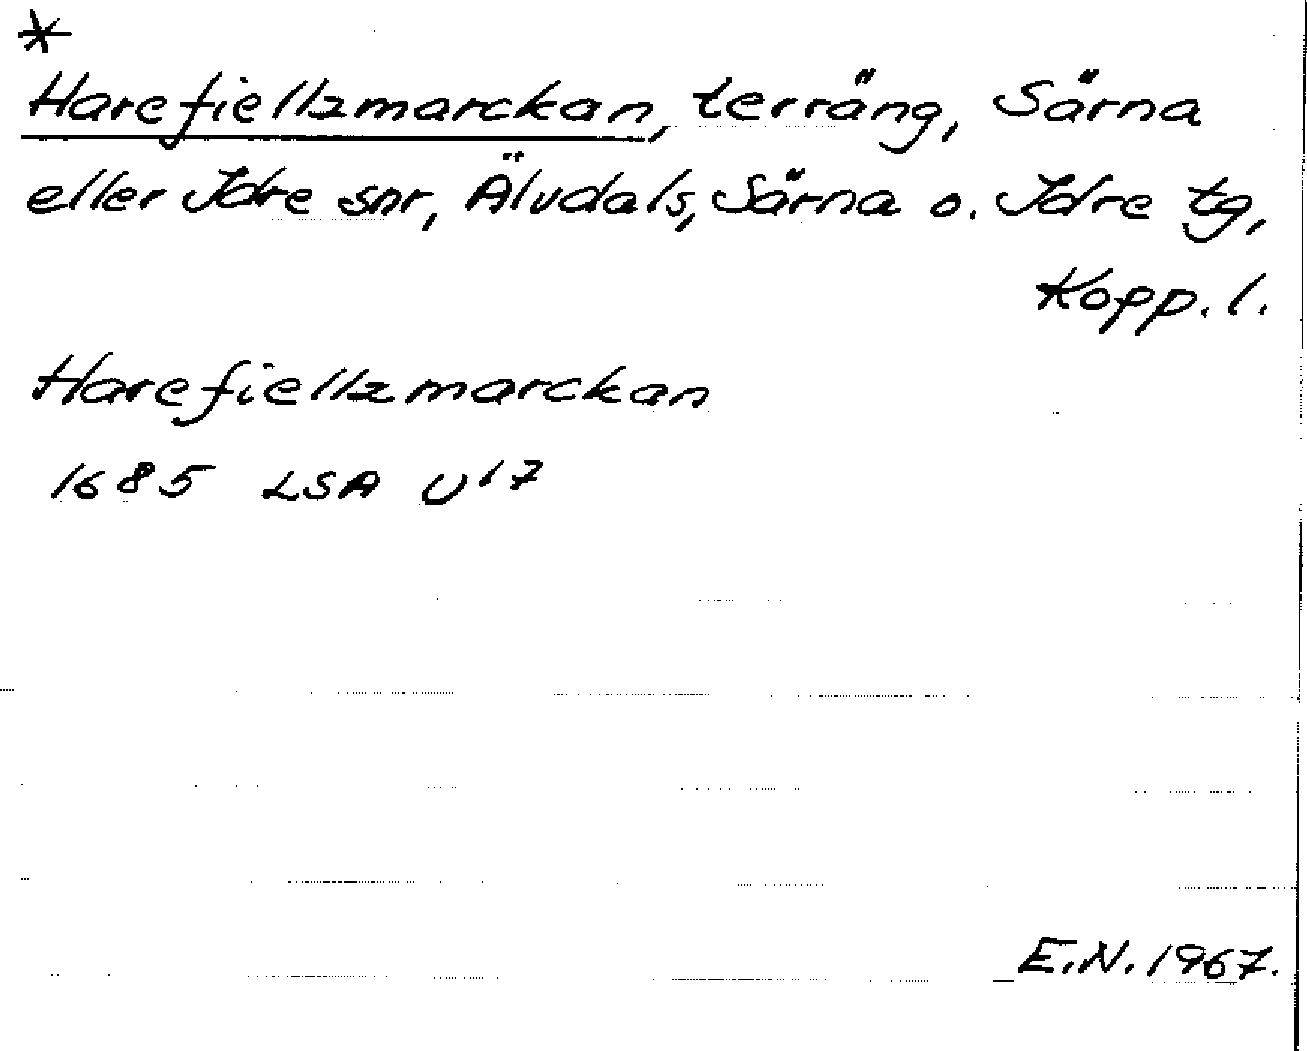 *
Harefiellzmarckan, terräng, Särna
eller Idre snr, Älvdals, Särna o. Idre tg,
Kopp. l.
Harefiellzmarckan
1685 LSA U17
E.N. 1967.